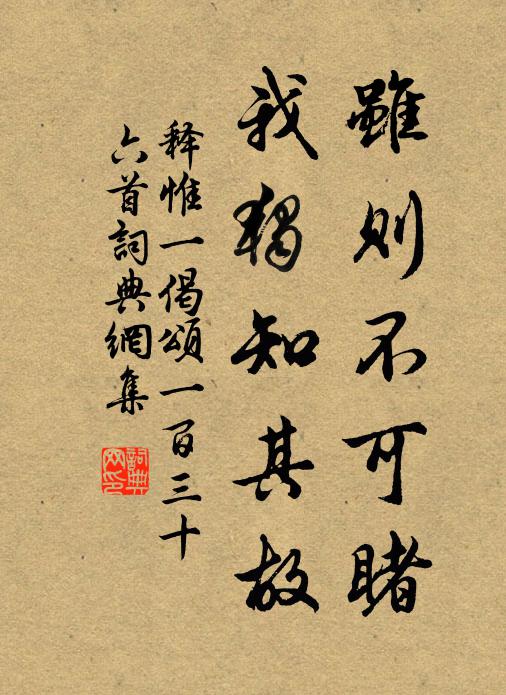 雖則不可睹
我獨知其故
释惟一偈頌一百三十
六首詞典網集
詞典
网印